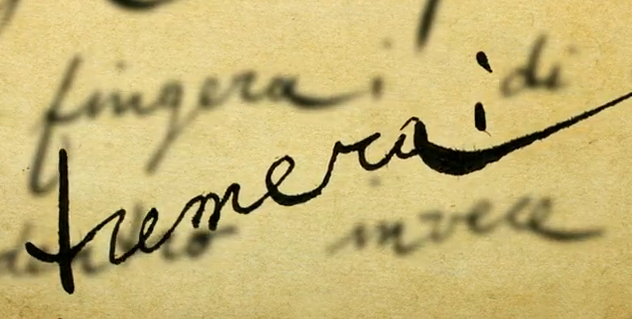 fingerai di
tremerai
dentro invece